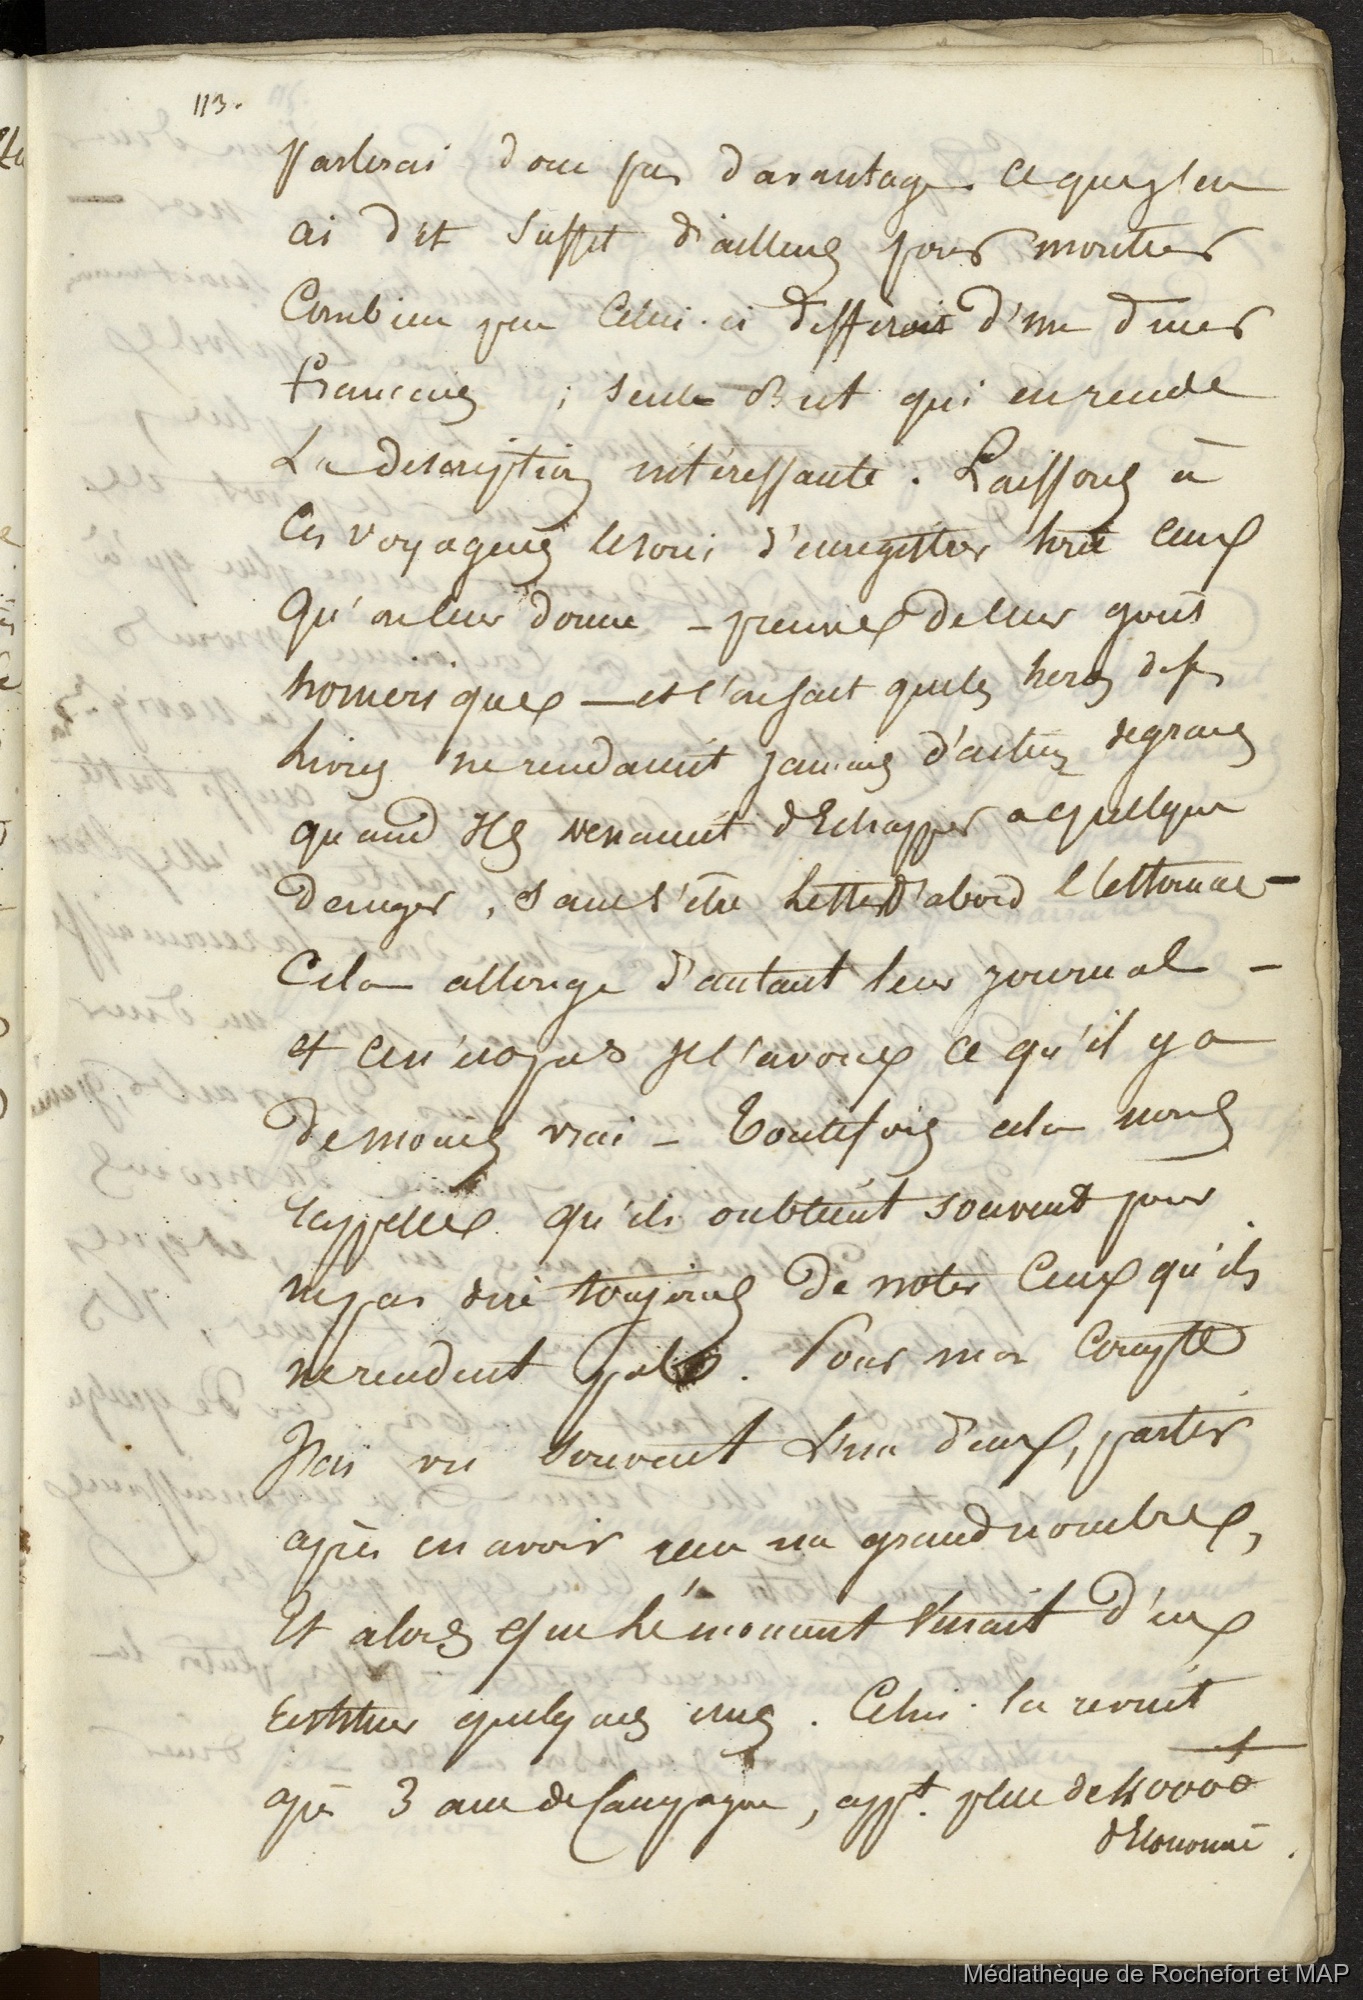 113.
parlerai donc pas davantage. Ce que j'en
ai dit suffit d'ailleurs pour montrer
Combien peu Celui-ci differait d'un diner
francais ; seule But qui en rende
La description intéressante. Laissons à
Ces voyageurs le soin d'enregistrer tous ceux
Qu'on leur donne – preuve de leur gouts
homeriques – et l'on sait que les heros de ses
Livres ne rendaient jamais d'actions de graces
quand Ils venaient d'Echapper a quelque
danger, sans s'être lestés d'abord l'estomac –
Cela allonge d'autant leur journal –
et ce n'est pas je l'avoue ce qu'il y a
De moins vrai – Toutefois cela nous
rappelle qu'ils oublient souvent pour
ne pas dire toujours De noter Ceux qu'ils
ne rendent pas. Pour mon Compte
J'ai vu souvent L'un d'eux, partir
après en avoir reçu un grand nombre,
Et alors que le moment venait d'en
restituer quelques uns. Celui-là revint
après 3 ans de Campagne, appt. plus de 4000f
d'Economie.
Médiathèque de Rochefort et MAP